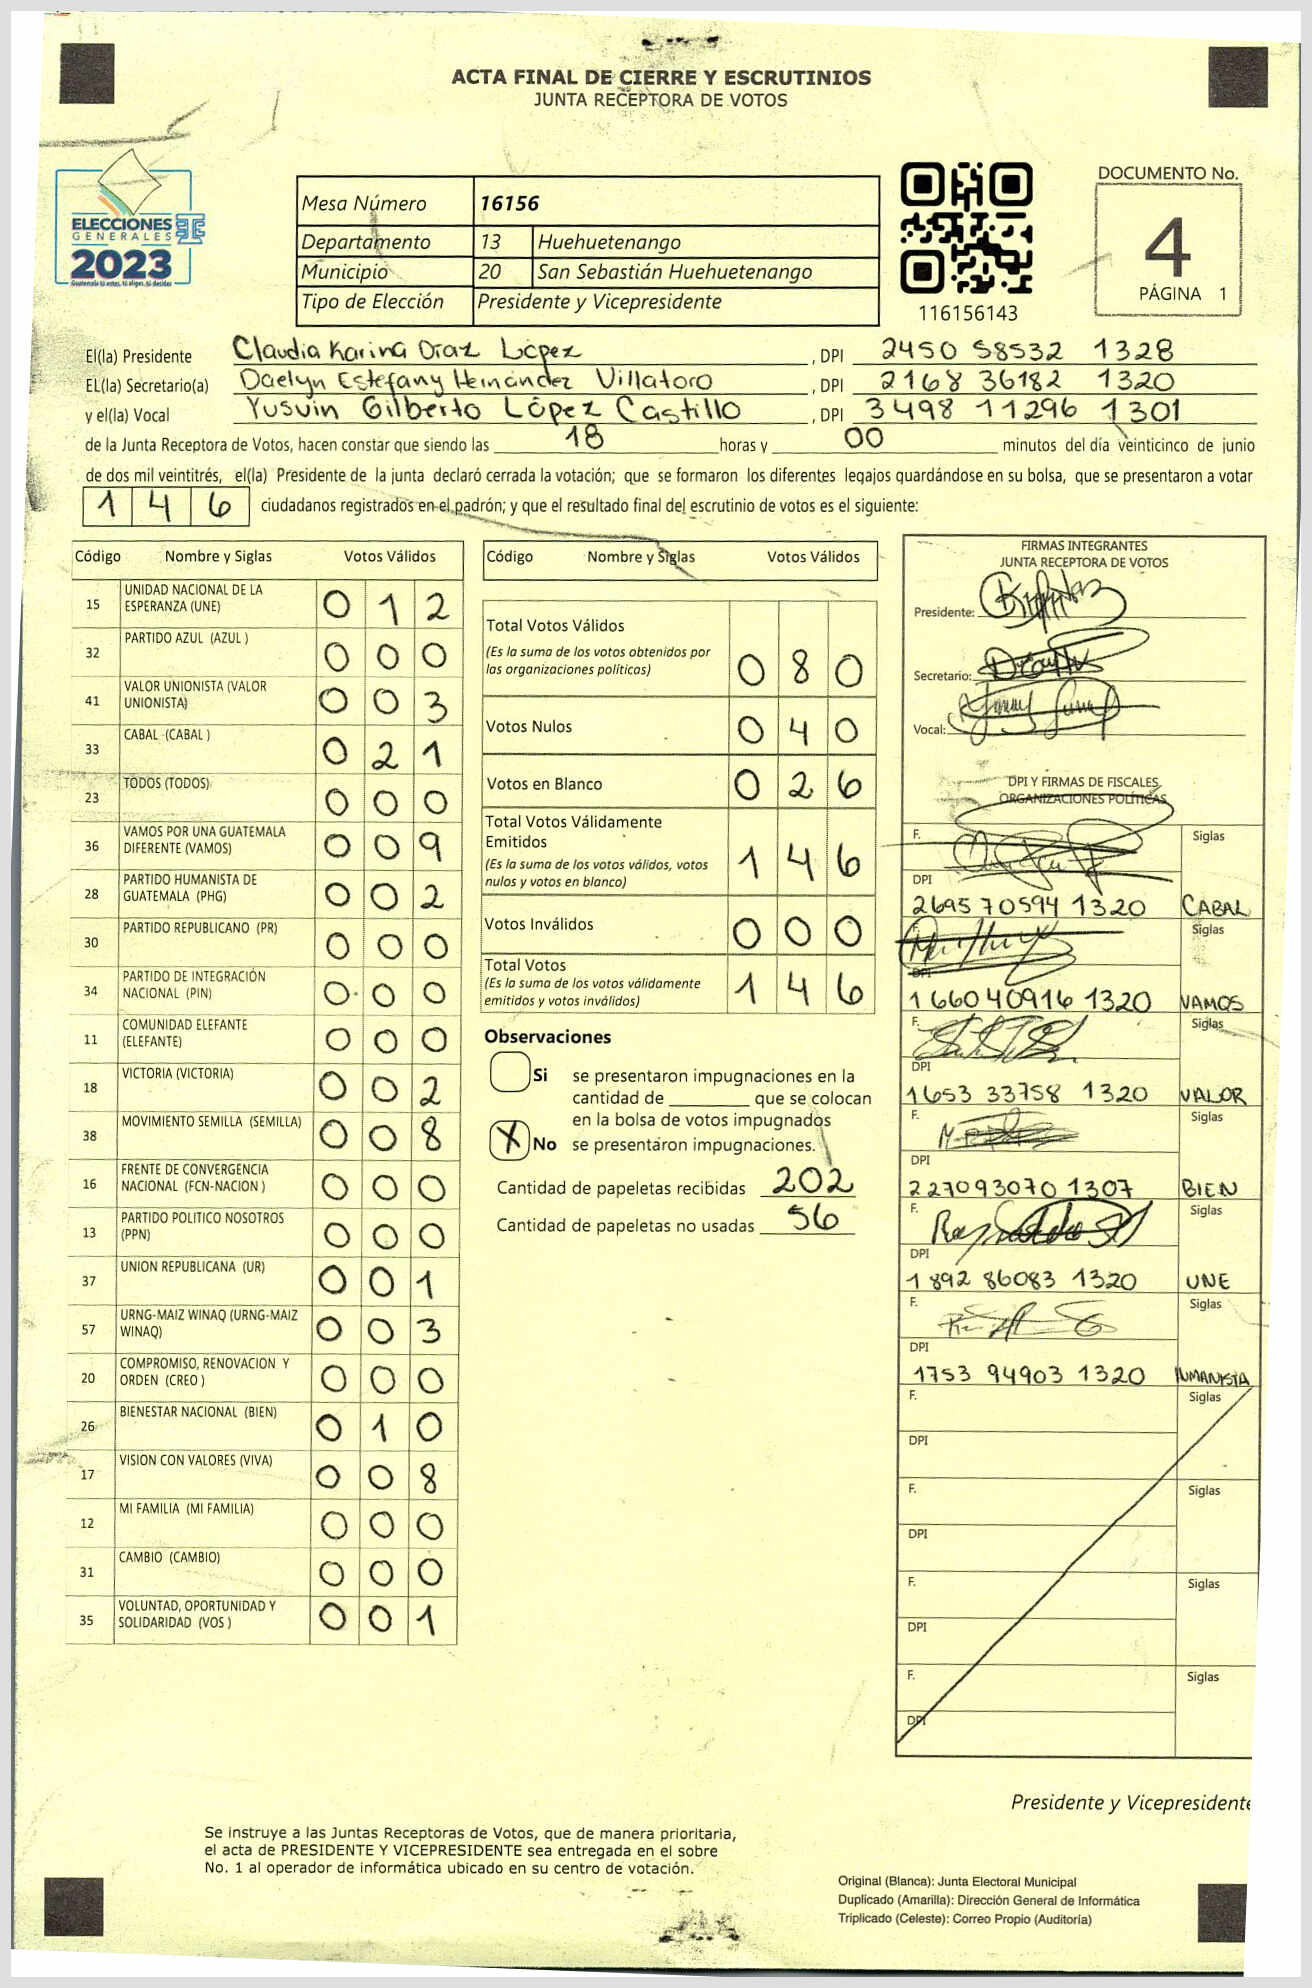 ACTA FINAL DE CIERRE Y ESCRUTINIOS
JUNTA RECEPTORA DE VOTOS
ELECCIONES
GENERALES
2023
Guatemala tú eres, tú eliges, tú decides
Mesa Número 16156
Departamento 13 Huehuetenango
Municipio 20 San Sebastián Huehuetenango
Tipo de Elección Presidente y Vicepresidente
116156143
DOCUMENTO No.
4
PÁGINA 1
El(la) Presidente Claudia Karina Díaz López , DPI 2450 58532 1328
EL(la) Secretario(a) Daelyn Estefany Hernández Villatoro , DPI 2168 36182 1320
y el(la) Vocal Yusvin Gilberto López Castillo , DPI 3498 11296 1301
de la Junta Receptora de Votos, hacen constar que siendo las 18 horas y 00 minutos del día veinticinco de junio
de dos mil veintitrés, el(la) Presidente de la junta declaró cerrada la votación; que se formaron los diferentes legajos guardándose en su bolsa, que se presentaron a votar
146 ciudadanos registrados en el padrón; y que el resultado final del escrutinio de votos es el siguiente:
Código Nombre y Siglas Votos Válidos
15 UNIDAD NACIONAL DE LA ESPERANZA (UNE) 012
32 PARTIDO AZUL (AZUL ) 000
41 VALOR UNIONISTA (VALOR UNIONISTA) 003
33 CABAL (CABAL ) 021
23 TODOS (TODOS) 000
36 VAMOS POR UNA GUATEMALA DIFERENTE (VAMOS) 009
28 PARTIDO HUMANISTA DE GUATEMALA (PHG) 002
30 PARTIDO REPUBLICANO (PR) 000
34 PARTIDO DE INTEGRACIÓN NACIONAL (PIN) 000
11 COMUNIDAD ELEFANTE (ELEFANTE) 000
18 VICTORIA (VICTORIA) 002
38 MOVIMIENTO SEMILLA (SEMILLA) 008
16 FRENTE DE CONVERGENCIA NACIONAL (FCN-NACION ) 000
13 PARTIDO POLITICO NOSOTROS (PPN) 000
37 UNION REPUBLICANA (UR) 001
57 URNG-MAIZ WINAQ (URNG-MAIZ WINAQ) 003
20 COMPROMISO, RENOVACION Y ORDEN (CREO ) 000
26 BIENESTAR NACIONAL (BIEN) 010
17 VISION CON VALORES (VIVA) 008
12 MI FAMILIA (MI FAMILIA) 000
31 CAMBIO (CAMBIO) 000
35 VOLUNTAD, OPORTUNIDAD Y SOLIDARIDAD (VOS ) 001
Código Nombre y Siglas Votos Válidos
Total Votos Válidos 080
(Es la suma de los votos obtenidos por
las organizaciones políticas)
Votos Nulos 040
Votos en Blanco 026
Total Votos Válidamente
Emitidos 146
(Es la suma de los votos válidos, votos
nulos y votos en blanco)
Votos Inválidos 000
Total Votos 146
(Es la suma de los votos válidamente
emitidos y votos inválidos)
Observaciones
Si se presentaron impugnaciones en la
cantidad de ________ que se colocan
en la bolsa de votos impugnados
X No se presentaron impugnaciones.
Cantidad de papeletas recibidas 202
Cantidad de papeletas no usadas 56
FIRMAS INTEGRANTES
JUNTA RECEPTORA DE VOTOS
Presidente:
Secretario:
Vocal:
DPI Y FIRMAS DE FISCALES
ORGANIZACIONES POLÍTICAS
F. Siglas
DPI
2695 70594 1320 CABAL
F. Siglas
DPI
1660 40916 1320 VAMOS
F. Siglas
DPI
1653 33758 1320 VALOR
F. Siglas
DPI
2270 93070 1307 BIEN
F. Siglas
DPI
1892 86083 1320 UNE
F. Siglas
DPI
1753 94903 1320 HUMANISTA
F. Siglas
DPI
F. Siglas
DPI
F. Siglas
DPI
F. Siglas
DPI
Presidente y Vicepresidente
Se instruye a las Juntas Receptoras de Votos, que de manera prioritaria,
el acta de PRESIDENTE Y VICEPRESIDENTE sea entregada en el sobre
No. 1 al operador de informática ubicado en su centro de votación.
Original (Blanca): Junta Electoral Municipal
Duplicado (Amarilla): Dirección General de Informática
Triplicado (Celeste): Correo Propio (Auditoría)